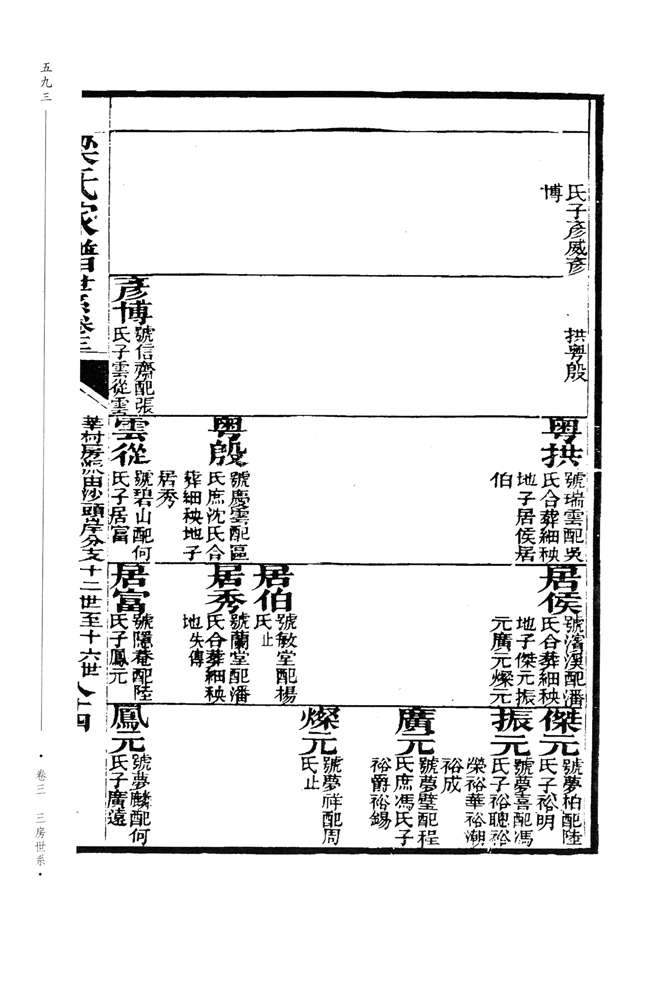 五九三
卷三 三房世系
氏子彦威彦
博
拱粤殷
彦博
號信齋配張
氏子雲從雲
粤拱
號瑞雲配吳
氏合葬細秧
地子居侯居
伯
粤殷
號慶雲配區
氏庶沈氏合
葬細秧地子
居秀
雲從
號碧山配何
氏子居富
居侯
號濱溪配潘
氏合葬細秧
地子傑元振
元廣元燦元
居伯
號敏堂配楊
氏止
居秀
號蘭堂配潘
氏合葬細秧
地失傳
居富
號隱菴配陸
氏子鳳元
傑元
號夢柏配陸
氏子裕明
振元
號夢喜配馮
氏子裕聰裕
榮裕華裕潮
裕成
廣元
號夢璧配程
氏庶馮氏子
裕爵裕錫
燦元
號夢祥配周
氏止
鳳元
號夢麟配何
氏子廣遠
梁氏家譜世系卷三
華村房派由沙頭岸分支十二世至十六世